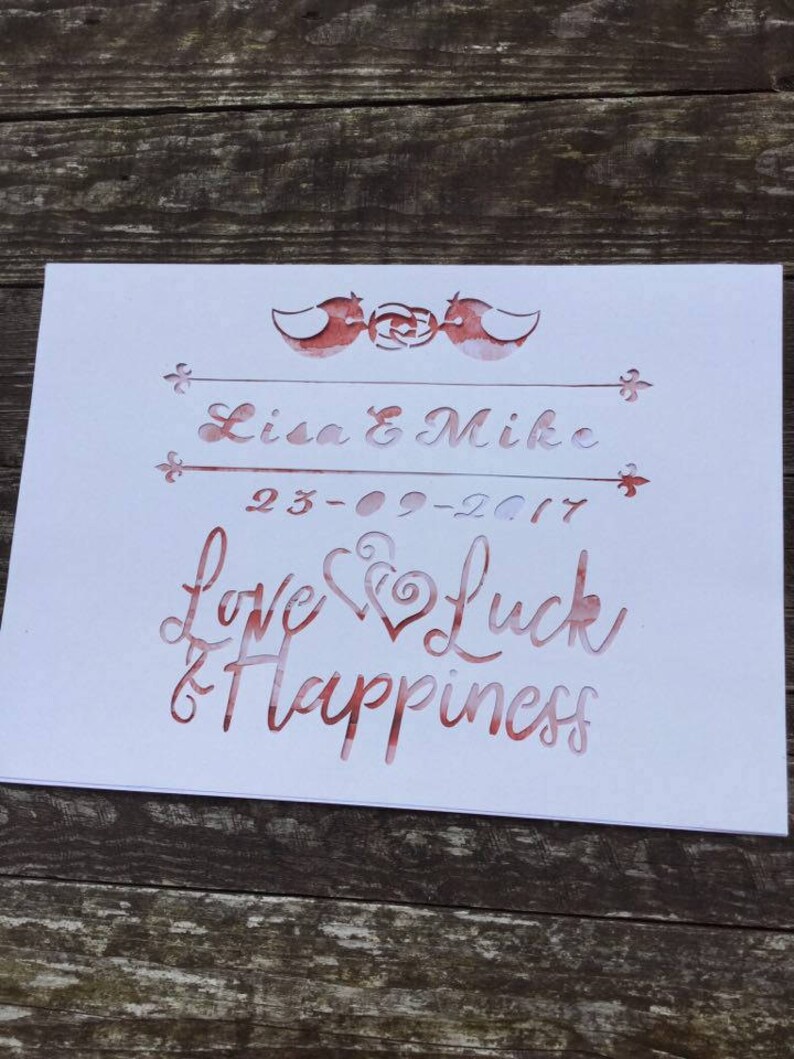 Lisa & Mike
23-09-2017
Love Luck
& Happiness